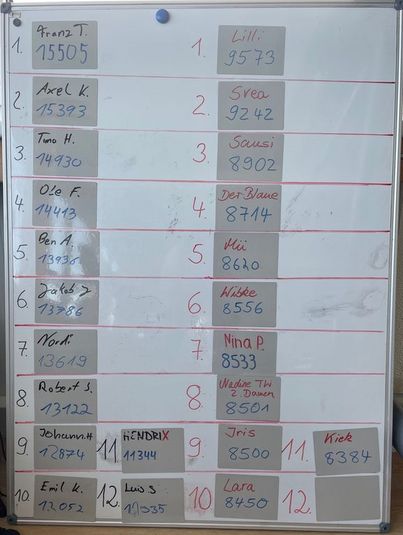 1. Franz T.
15505
2. Axel K.
15393
3. Timo H.
14930
4. Ole F.
14413
5. Ben A.
13936
6. Jakob J
13786
7. Nordi
13619
8. Robert S.
13122
9. Johann.H
12874
10. Emil K.
12052
11 HENDRIX
11344
12. Luis S
1. Lilli
9573
2. Svea
9242
3. Sausi
8902
4. Der Blaue
8714
5. Mü
8620
6. Wibke
8556
7. Nina P.
8533
8. Nadine TW
2. Damen
8501
9. Iris
8500
10 Lara
8450
11. Kick
8384
12.